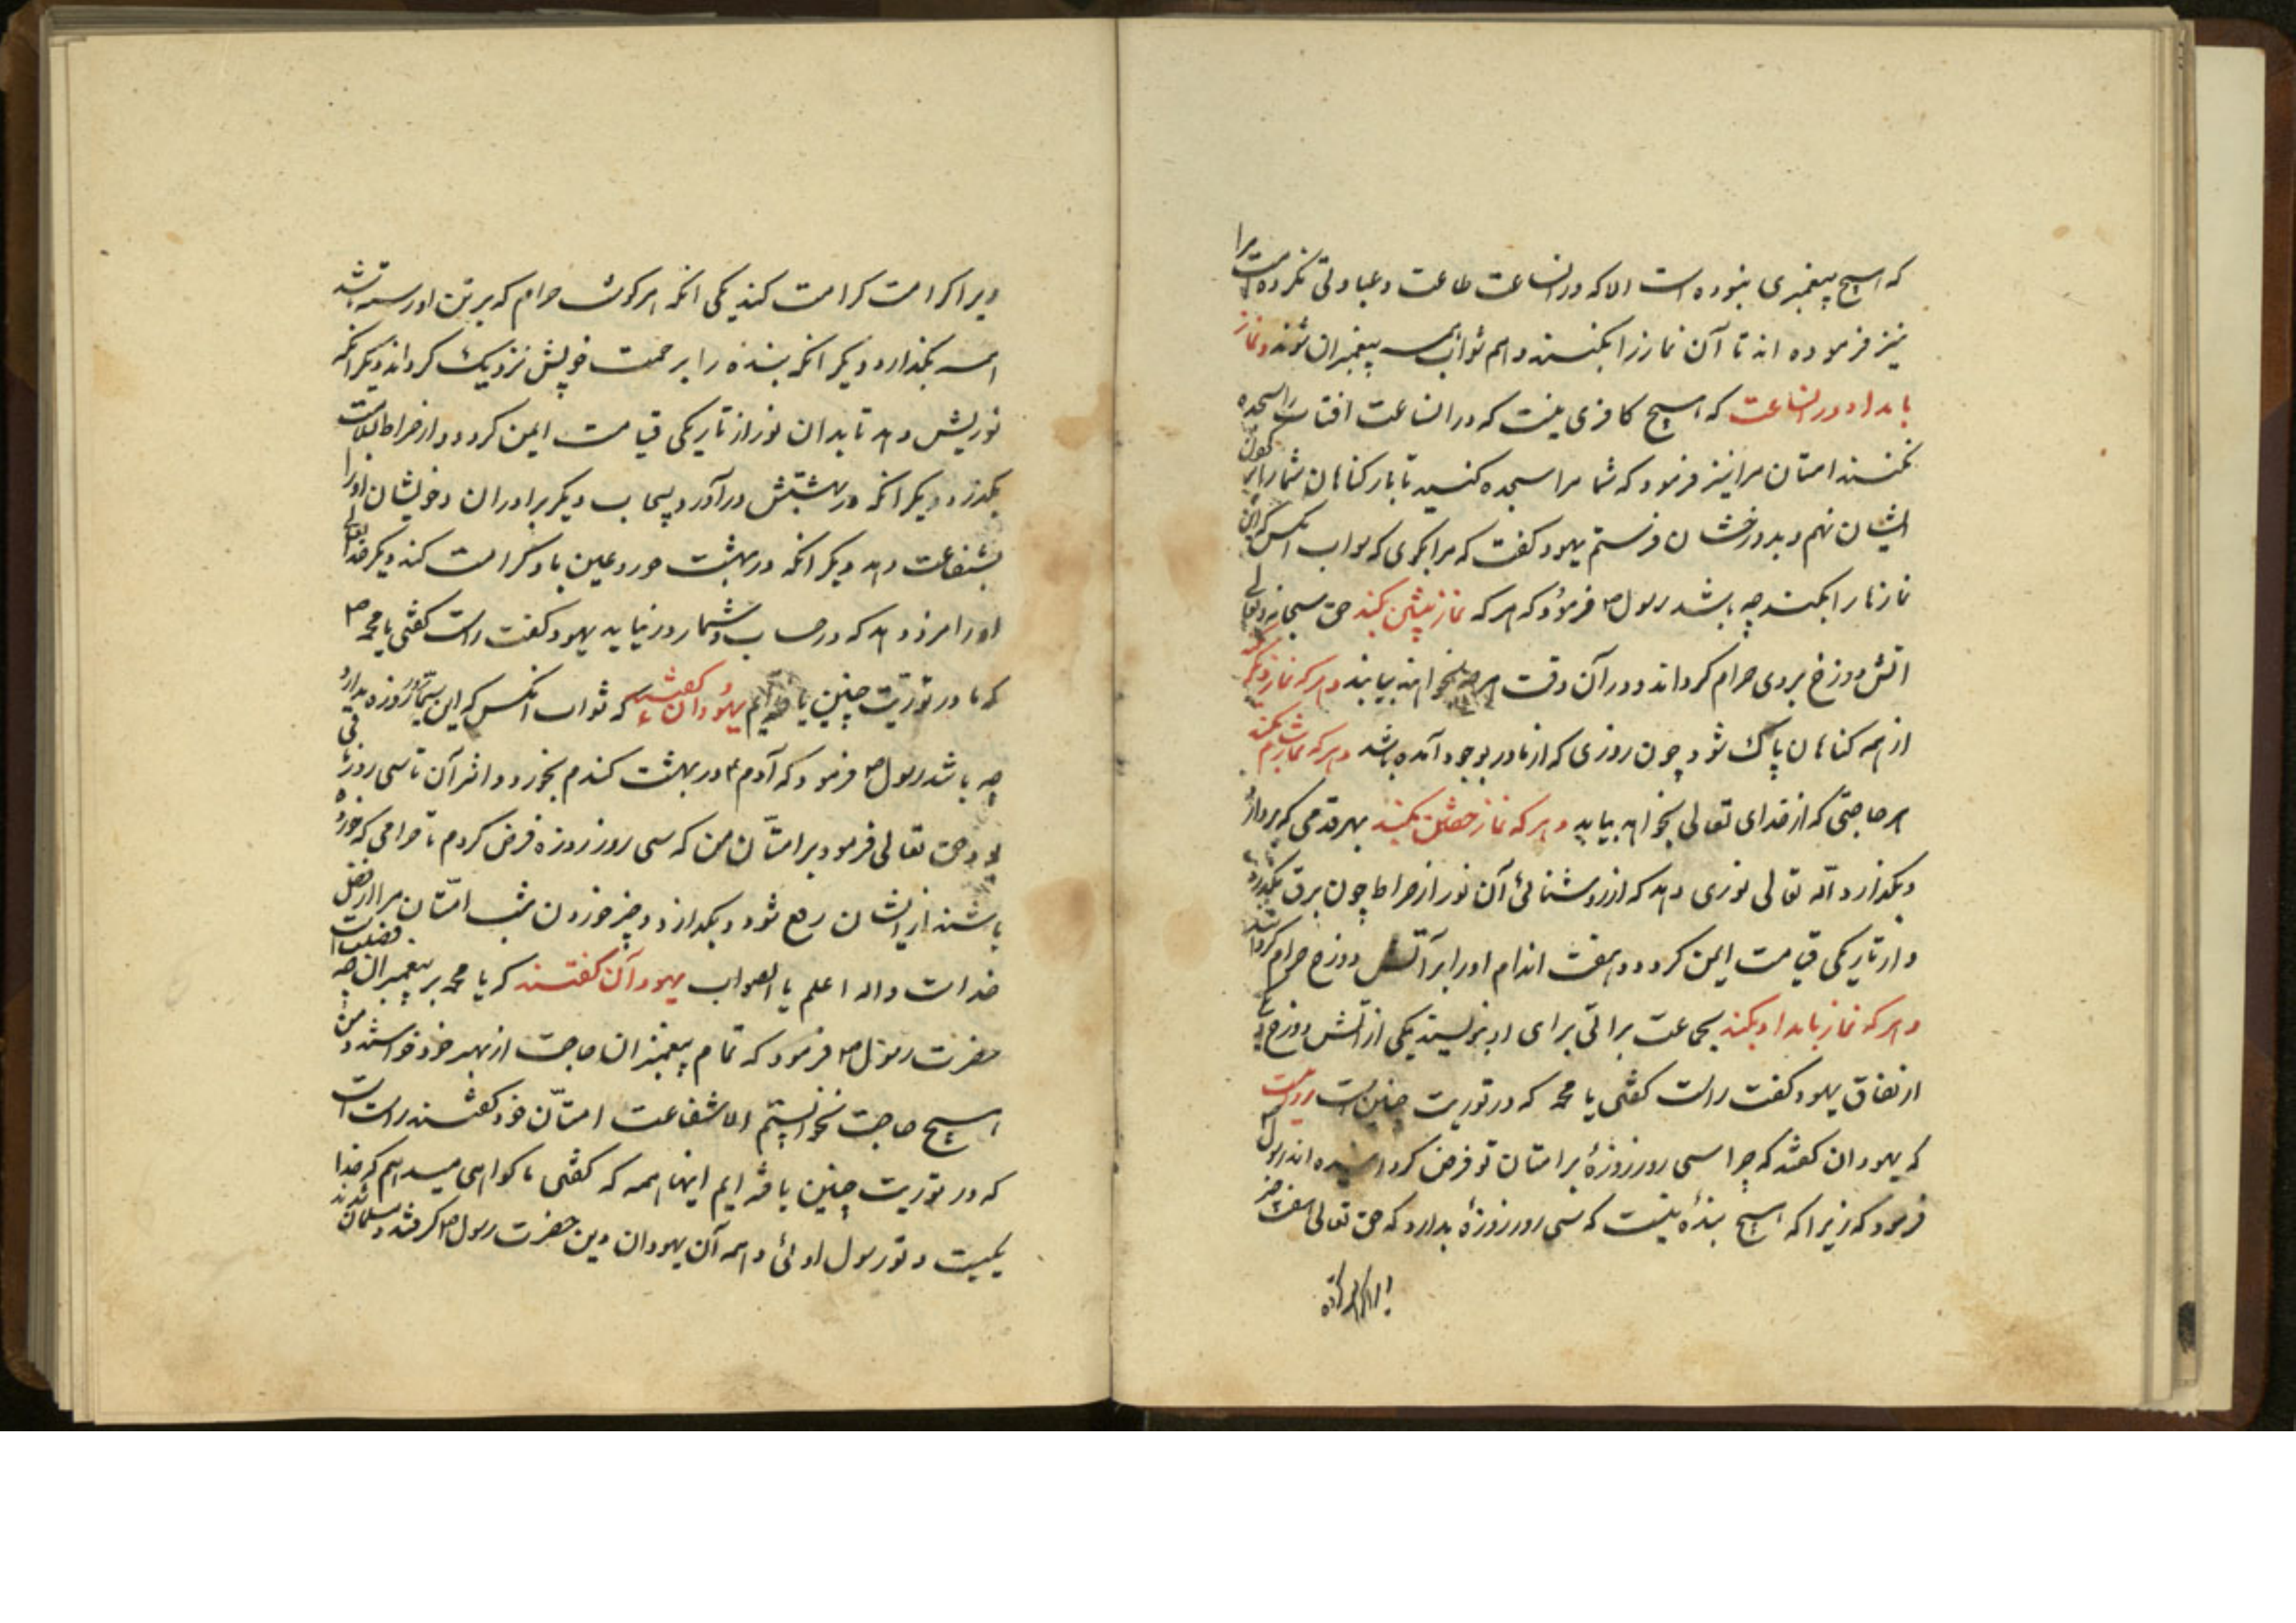 که هیچ پیغمبری نبوده است الا که در انساعت طاعت و عبادتی نکرده است مرا
نیز فرموده اند تا آن نماز را بکنند و هم ثواب همه پیغمبران شوند و نماز
بامداد در انساعت که هیچ کافری نیست که در انساعت افتاب را سجده
نکنند امتان مرا نیز فرمود که شما مرا سجده کنید تا بار کناهان شما را بر کردن
ایشان نهم و بدوزخشان فرستم یهود کفت که مرا بکوی که ثواب انکس که این
نمازها را بکند چه باشد رسول ص فرمود که هر که نماز پیشین بکند حق سبحانه و تعالی
اتش دوزخ بر وی حرام کرداند و در آن وقت هر چه بخواهند بیابند و هر که نماز دیکر بکند
از همه کناهان پاک شود چون روزی که از مادر بوجود آمده باشد و هر که نماز شام بکند
هر حاجتی که از خدای تعالی بخواهد بیابد و هر که نماز خفتن بکند بهر قدمی که بردارد
و بکذارد الله تعالی نوری دهد که از روشنائی آن نور از صراط چون برق بکذرد
و از تاریکی قیامت ایمن کردد و هفت اندام او را بر آتش دوزخ حرام کرداند
و هر که نماز بامداد بکند بجماعت براتی برای او بنویسند یکی از اتش دوزخ و یکی
از نفاق یهود کفت راست کفتی یا محمد که در توریت چنین است روایت
که یهودان کفتند که چرا سی روز روزه بر امتان تو فرض کرده اند رسول ص
فرمود که زیرا که هیچ بنده نیست که سی روز روزه بدارد که حق تعالی هفت چیز
ویرا کرامت
ویرا کرامت کرامت کند یکی انکه هر کوشت حرام که بر تن او رسته باشد
همه بکذارد دیکر انکه بنده را برحمت خویش نزدیک کرداند دیکر انکه
نوریش دهد تا بدان نور از تاریکی قیامت ایمن کردد و از صراط بسلامت
بکذرد دیکر انکه در بهشتش درآورد بیحساب دیکر برادران و خویشان او را
بشفاعت دهد دیکر انکه در بهشت حور و عین باو کرامت کند دیکر خدایتعالی
او را مزد دهد که در حساب و شمار در نیاید یهود کفت راست کفتی یا محمد ص
که ما در توریت چنین یافته ایم یهودان کفتند که ثواب انکس که این سی روز روزه بدارد
چه باشد رسول ص فرمود که آدم ع در بهشت کندم بخورد و اثر آن تا سی روز باقی
بود حق تعالی فرمود بر امتان من که سی روز روزه فرض کردم تا حرامی که خورده
باشند از ایشان رفع شود و بکدازد و چیز خوردن شب امتان مرا از فضل
خداست والله اعلم بالصواب یهود آن کفتند که یا محمد بر پیغمبران چه فضیلت است
حضرت رسول ص فرمود که تمام پیغمبران حاجت از بهر خود خواستند و من
هیچ حاجت نخواستم الا شفاعت امتان خود کفتند راست است
که در توریت چنین یافته ایم اینها همه که کفتی ما کواهی میدهیم که خدا
یکیست و تو رسول اوئی و همه آن یهودان دین حضرت رسول ص کرفتند و مسلمان شدند